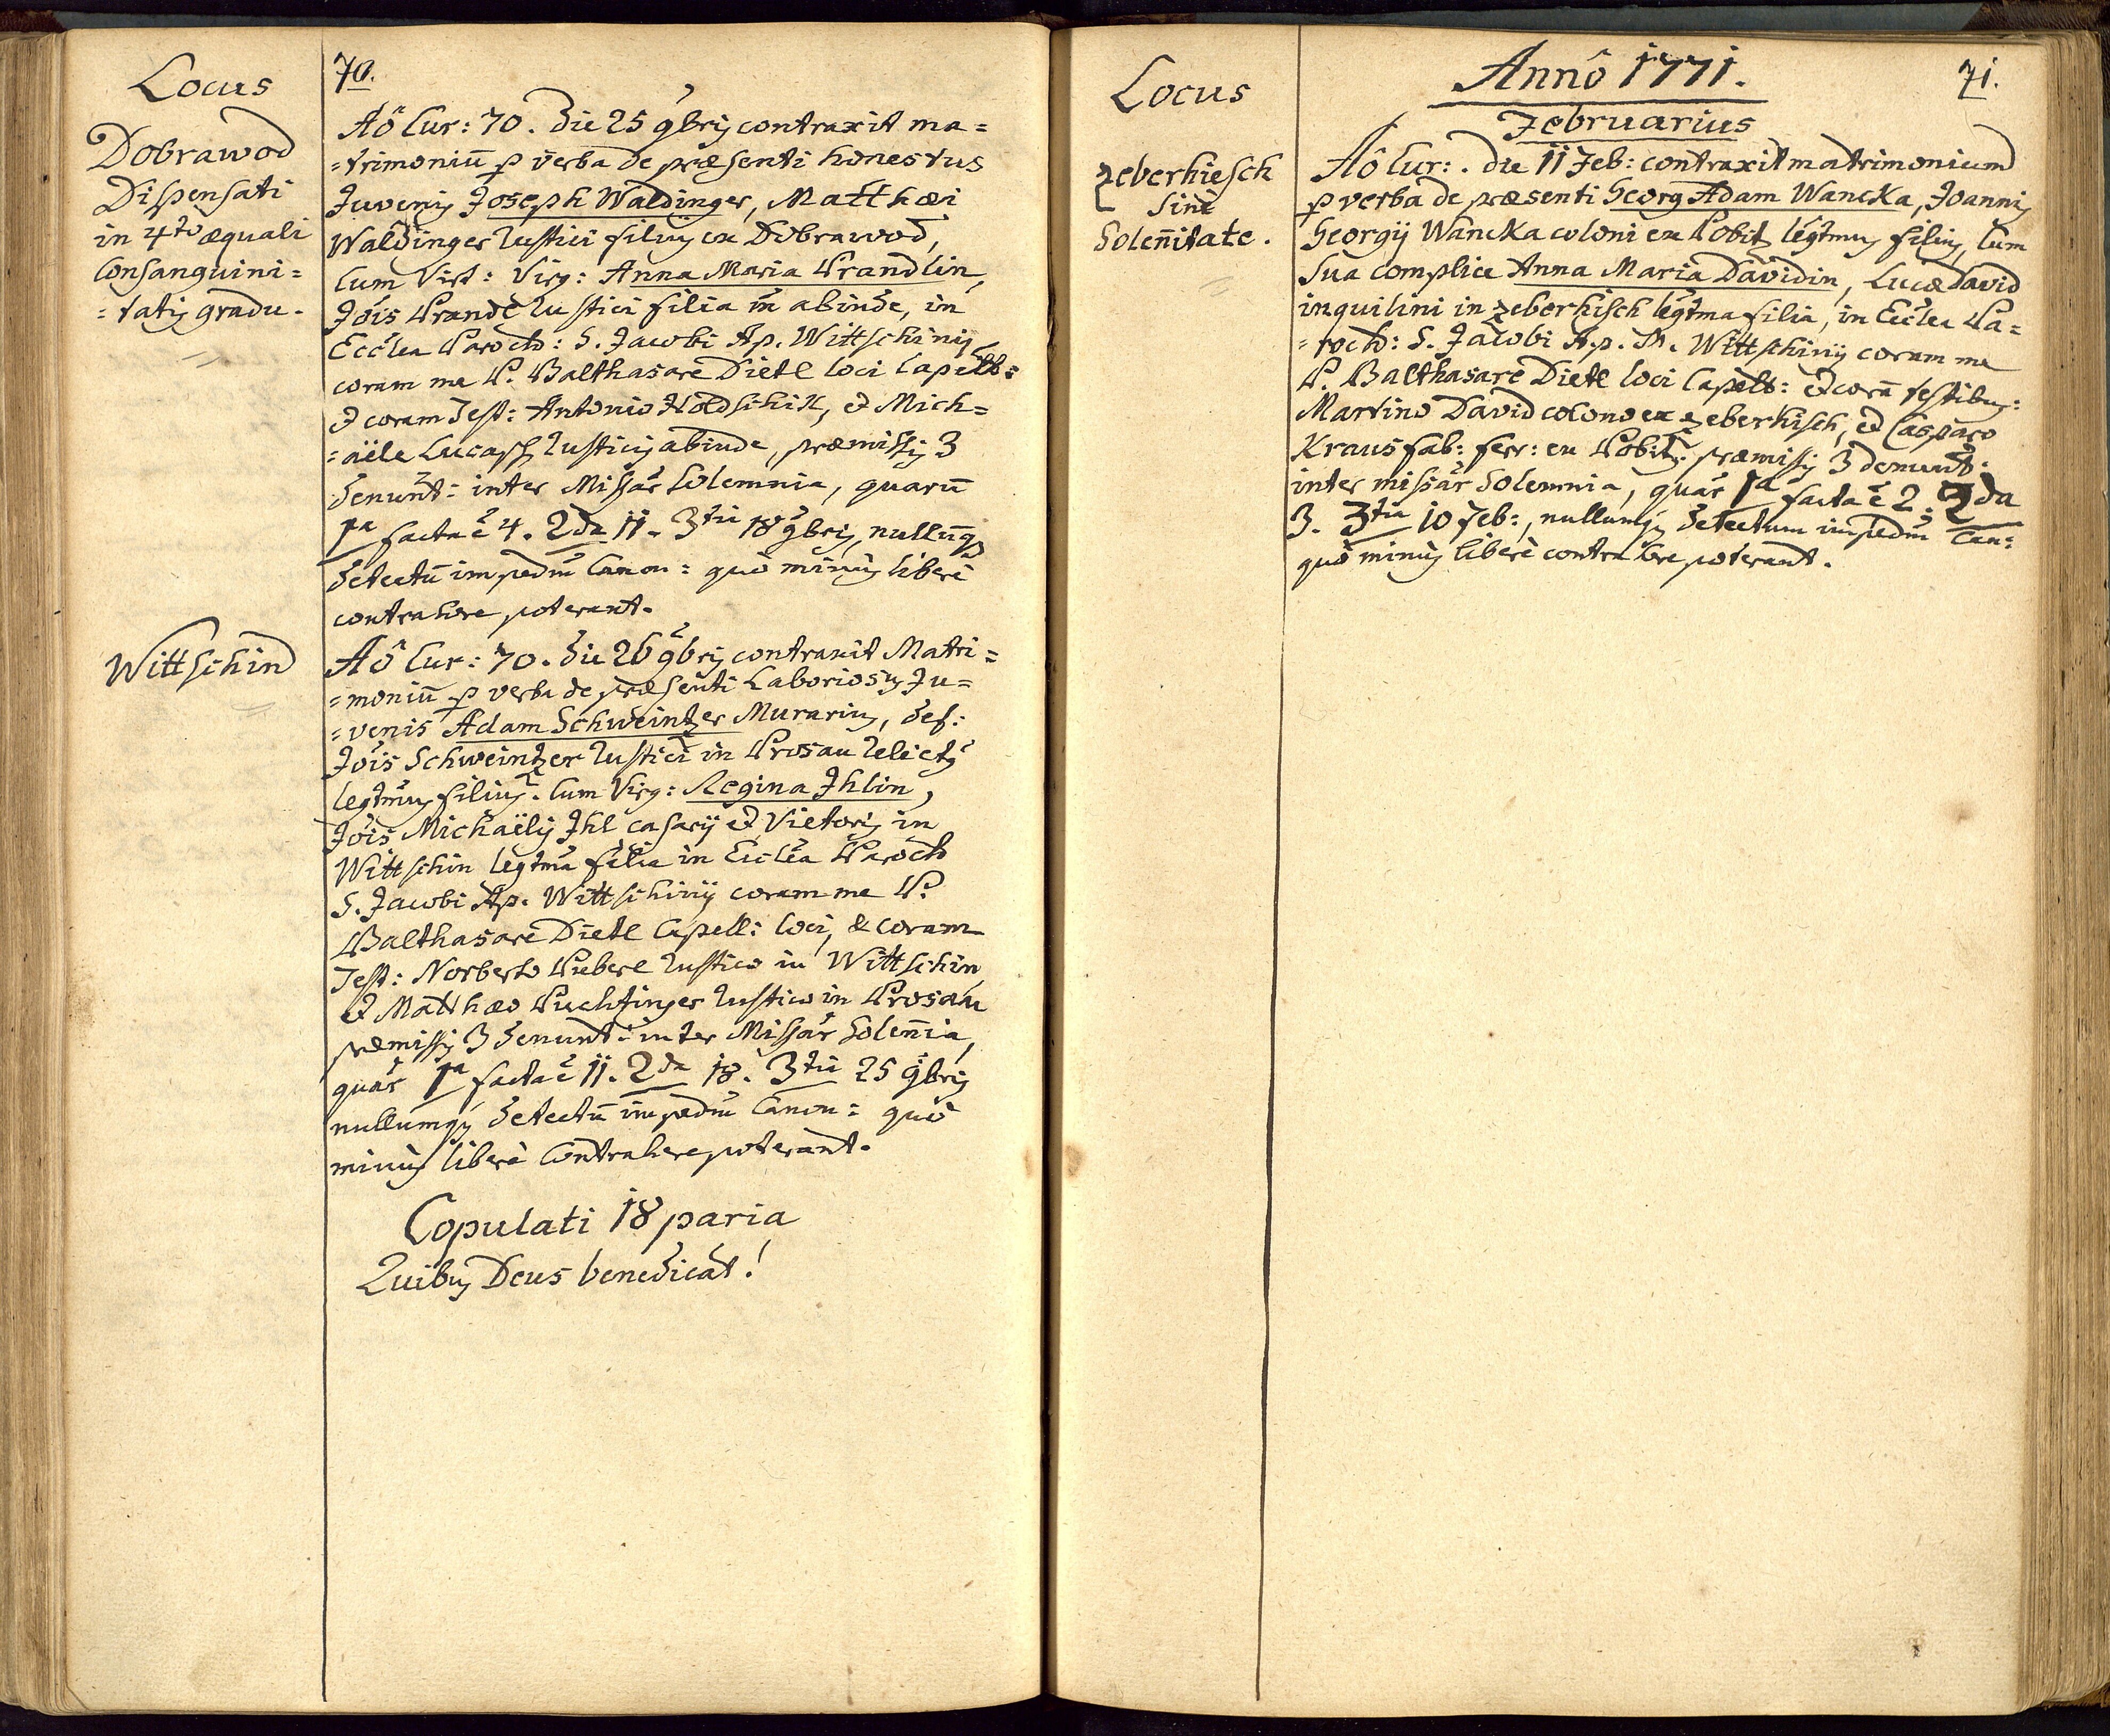 Locus
Dobrawod
Dispensati
in 4to æquali
Consanguini=
=tatis gradu.
Wittschin
70.
Aô Cur: 70. die 25 9bris contraxit ma=
=trimoniū p verba de præsenti honestus
Juvenis Joseph Waldinger, Matthæi
Waldinger Rustici filius ex Dobrawod,
Cum Virt: Virg: Anna Maria Prandlin,
Jois Prandl Rustici filia abinde, in
Ecclea Paroch: S. Jacobi Ap. Wittschinij
coram me P. Balthasare Dietl loci Capell:
et coram Test: Antonio Holdschik, et Mich=
=aële Lucasch Rusticis abinde, præmissis 3
denunt: inter Missar Solemnia, quarū
1a facta ē 4. 2da 11. 3tia 18 9bris, nullūq
detectū impedm Canon: quò minùs liberè
contrahere poterant.
Aô Cur: 70. die 26 9bris contraxit Matri=
=moniū p verba de præsenti Laboriosus Ju=
=venis Adam Schweintzer Murarius, def:
Jois Schweintzer Rustici in Prosau relictus
legtmus filius. Cum Virg: Regina Ihlin,
Jois Michaëlis Ihl casarij et Vietoris in
Wittschin legtma filia in Ecclea Paroch
S. Jacobi Ap. Wittschinij coram me P.
Balthasare Dietl Capell: loci, & coram
Test: Norberto Piebere Rustico in Wittschin
et Matthæo Puchtinger Rustico in Prosau
præmissis 3 denunt: inter Missar Solen̄ia,
quar 1a facta ē 11. 2da 18. 3tia 25 9bris
nullumqs detectū impedm Canon: quò
minùs liberè Contrahere poterant.
Copulati 18 paria
Quibus Deus benedicat!
Locus
Zeberhiesch
Sine
Solen̄itate.
Annô 1771.
71.
Februarius
Aô Cur:. die 11 Feb: contraxit matrimonium
p verba de præsenti Georg Adam Wancka, Joannis
Georgij Wancka coloni ex Pobitz legtmus filius, Cum
Sua complice Anna Maria Davidin, Lucæ David
inquilini in Zeberhisch legtma filia, in Ecclea Pa=
=roch: S. Jacobi Ap. M. Wittschinij coram me
P. Balthasare Dietl loci Capell: et corā testibus:
Martino David colono ex Zeberhisch, et Casparo
Kraus fab: ferr: ex Pobitz. præmissis 3 denunt:
inter missar Solemnia, quar 1a facta ē 2. 2da
3. 3tia 10 Feb:, nullumqs detectum impedm Can:
quò minùs liberè contrahere poterant.